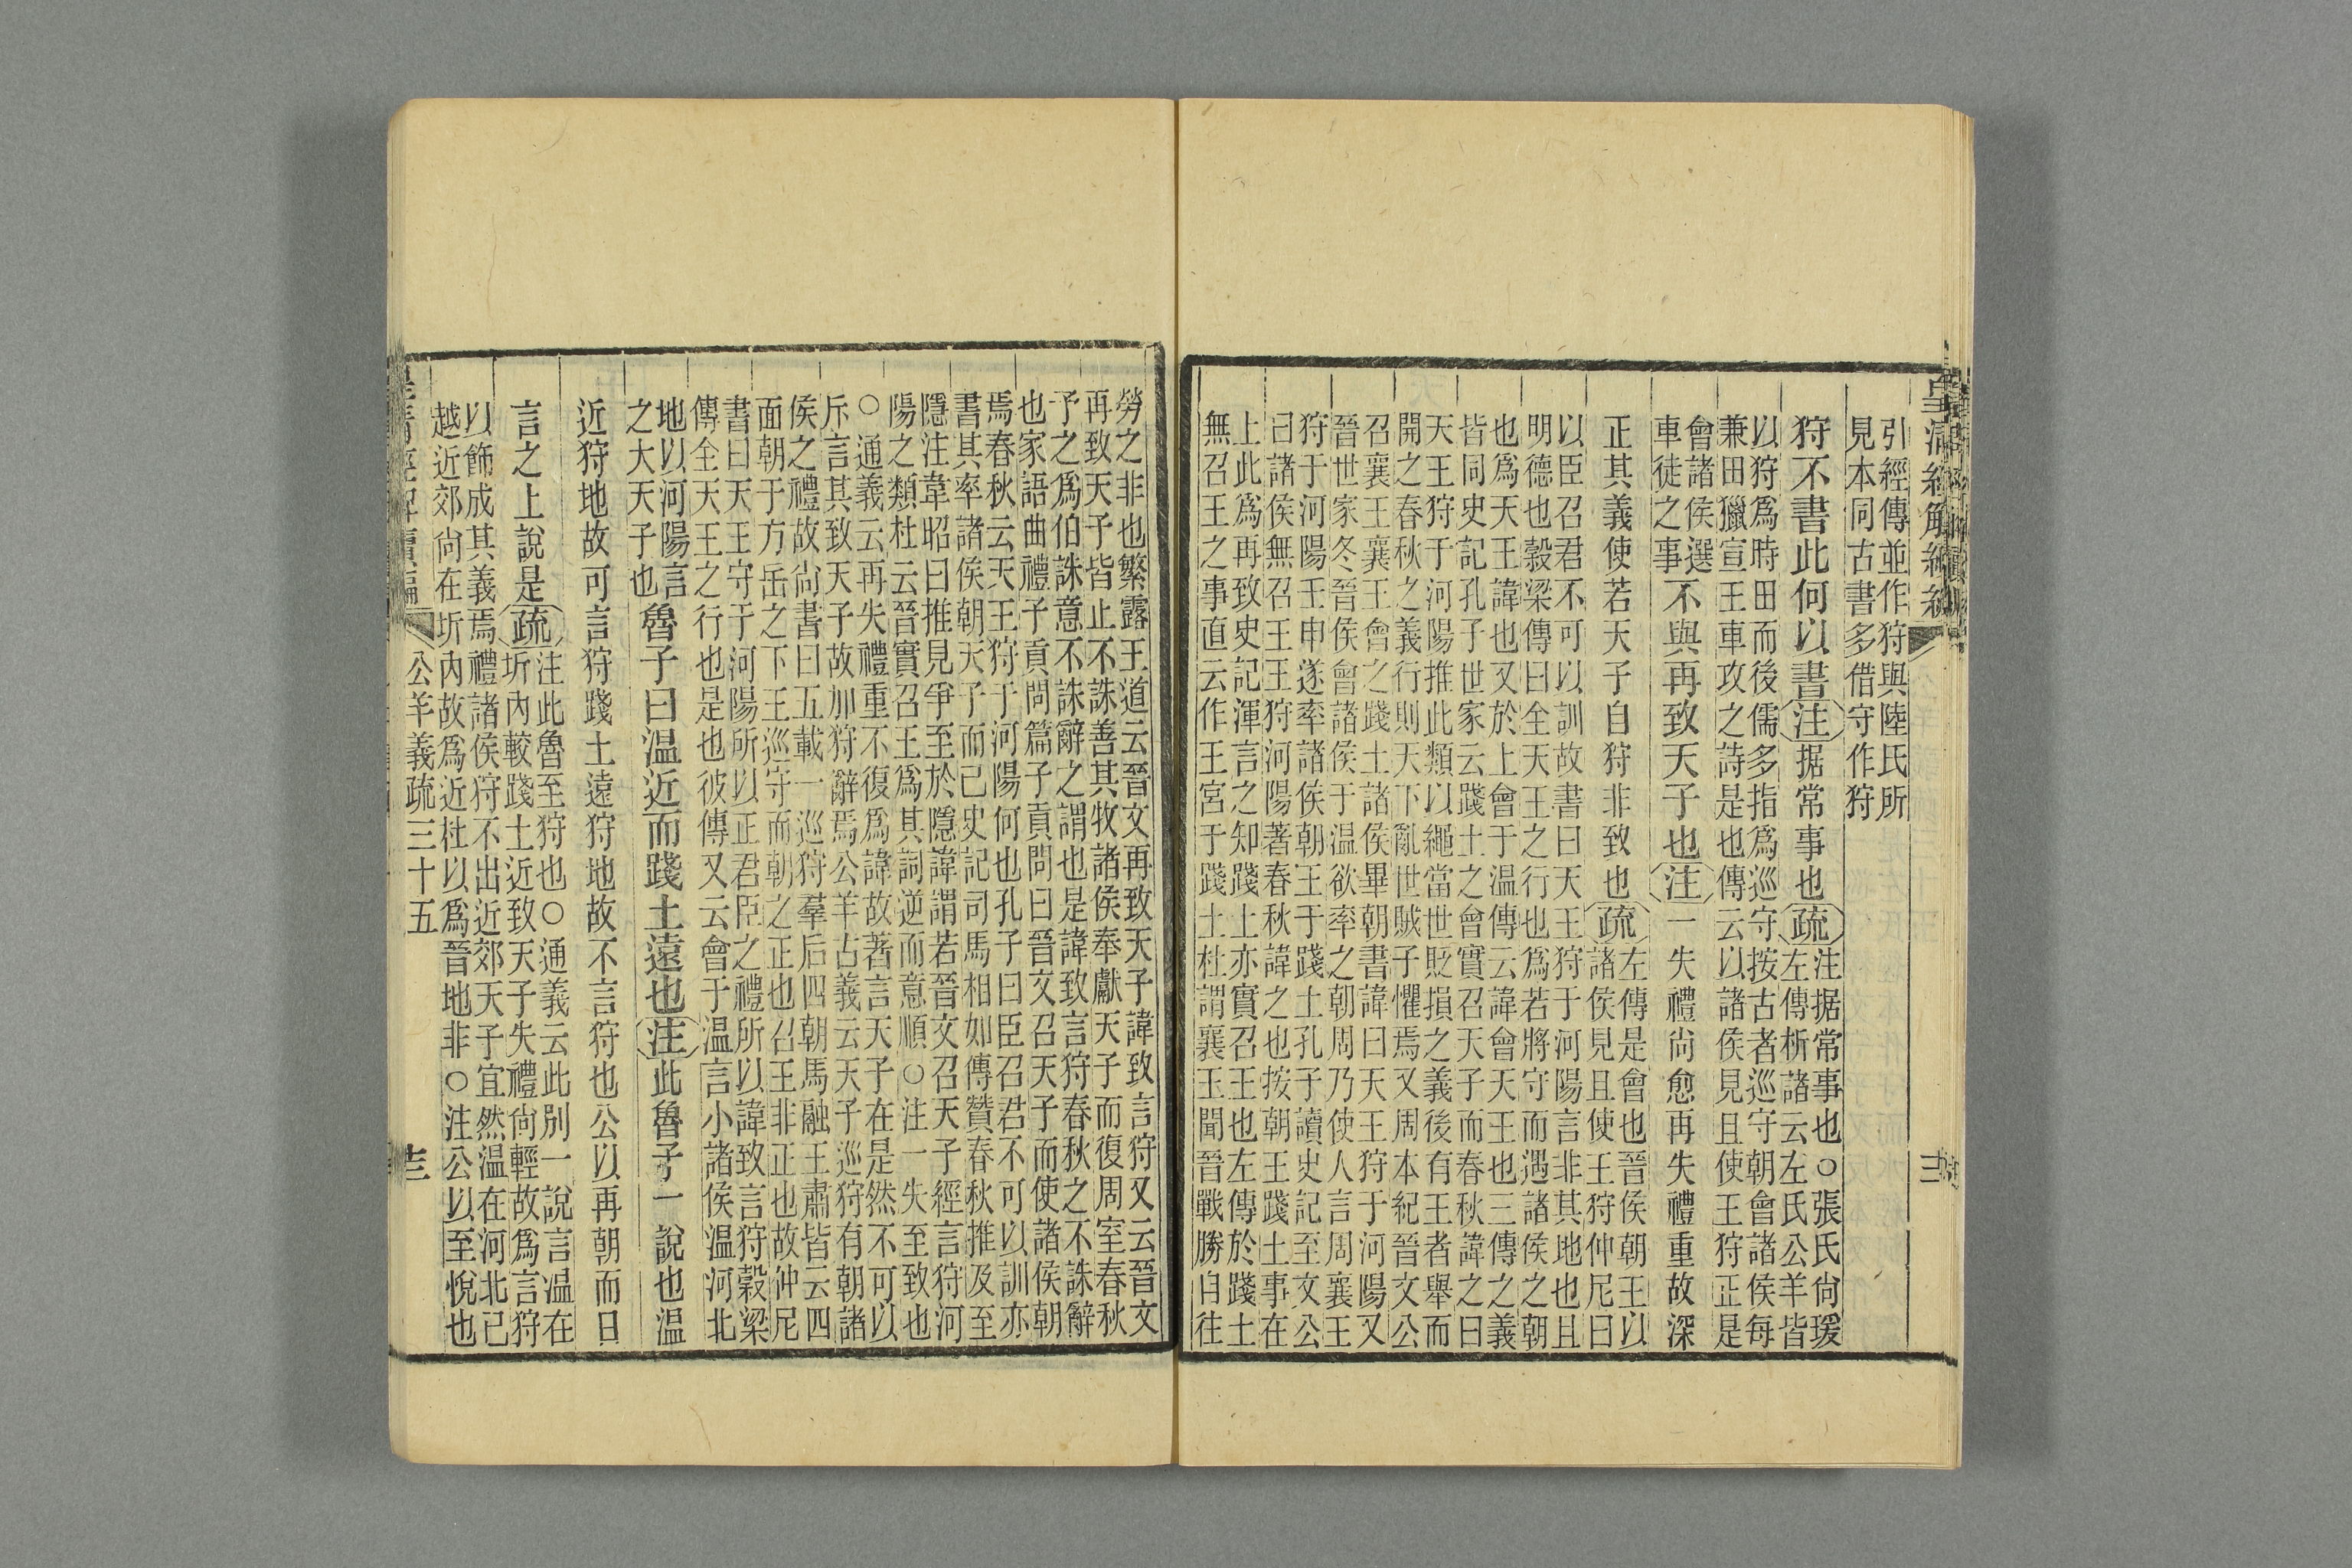 引經傳並作狩與陸氏所
見本同古書多借守作狩
狩不書此何以書注据常事也疏
注据常事也○張氏尙瑗
左傳析諸云左氏公羊皆
以狩爲時田而後儒多指爲巡守按古者巡守朝會諸侯每
兼田獵宣王車攻之詩是也傳云以諸侯見且使王狩正是
會諸侯選
車徒之事
不與再致天子也注一失禮尙愈再失禮重故深
正其義使若天子自狩非致也疏
左傳是會也晉侯朝王以
諸侯見且使王狩仲尼曰
以臣召君不可以訓故書曰天王狩于河陽言非其地也且
明德也穀梁傳曰全天王之行也爲若將守而遇諸侯之朝
也爲天王諱也又於上會于温傳云諱會天王也三傳之義
皆同史記孔子世家云踐土之會實召天子而春秋諱之曰
天王狩于河陽推此類以繩當世貶損之義後有王者舉而
開之春秋之義行則天下亂世賊子懼焉又周本紀晉文公
召襄王襄王會之踐土諸侯畢朝書諱曰天王狩于河陽又
晉世家冬晉侯會諸侯于温欲率之朝周乃使人言周襄王
狩于河陽壬申遂率諸侯朝王于踐土孔子讀史記至文公
曰諸侯無召王王狩河陽著春秋諱之也按朝王踐土事在
上此爲再致史記渾言之知踐土亦實召王也左傳於踐土
無召王之事直云作王宮于踐土杜謂襄王聞晉戰勝自往
勞之非也繁露王道云晉文再致天子諱致言狩又云晉文
再致天子皆止不誅善其牧諸侯奉獻天子而復周室春秋
予之爲伯誅意不誅辭之謂也是諱致言狩春秋之不誅辭
也家語曲禮子貢問篇子貢問曰晉文召天子而使諸侯朝
焉春秋云天王狩于河陽何也孔子曰臣召君不可以訓亦
書其率諸侯朝天子而已史記司馬相如傳贊春秋推及至
隱注韋昭曰推見爭至於隱諱謂若晉文召天子經言狩河
陽之類杜云晉實召王爲其詞逆而意順○注一失至致也
○通義云再失禮重不復爲諱故著言天子在是然不可以
斥言其致天子故加狩辭焉公羊古義云天子巡狩有朝諸
侯之禮故尙書曰五載一巡狩羣后四朝馬融王肅皆云四
面朝于方岳之下王巡守而朝之正也召王非正也故仲尼
書曰天王守于河陽所以正君臣之禮所以諱致言狩穀梁
傳全天王之行也是也彼傳又云會于温言小諸侯温河北
地以河陽言
之大天子也
魯子曰温近而踐土遠也注此魯子一說也温
近狩地故可言狩踐土遠狩地故不言狩也公以再朝而日
言之上說是疏
注此魯至狩也○通義云此別一說言温在
圻內較踐土近致天子失禮尙輕故爲言狩
以飾成其義焉禮諸侯狩不出近郊天子宜然温在河北已
越近郊尙在圻內故爲近杜以爲晉地非○注公以至悅也
公羊義疏三十五